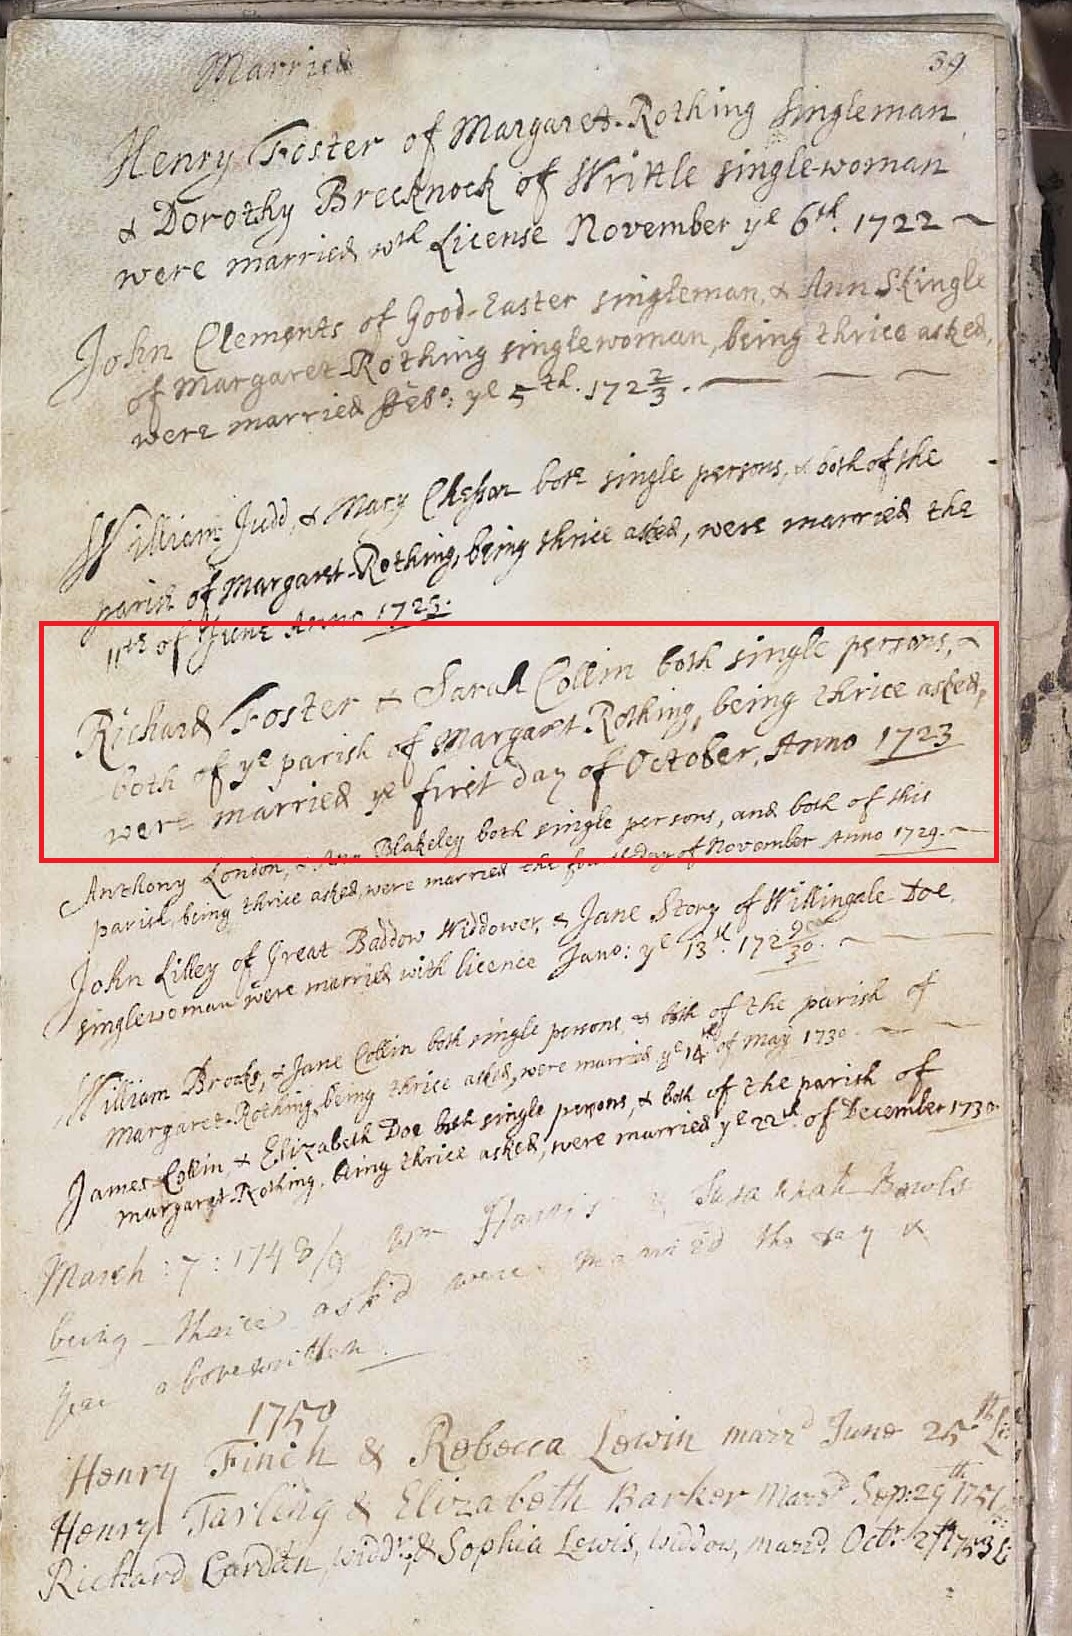 39
Married
Henry Foster of Margaret-Rothing singleman
& Dorothy Brecknock of Writtle single-woman
were married wth License November ye 6th. 1722
John Clements of Good-Easter singleman, & Ann Skingle
of Margaret-Rothing singlewoman, being thrice asked,
were married Feb: ye 5th. 172 2/3.
William Judd, & Mary both single persons, & both of the
parish of Margaret-Rothing, being thrice asked, were married the
11th of June Anno 1723.
Richard Foster & Sarah Collin both single persons,
both of ye parish of Margaret-Rothing, being thrice asked,
were married ye first day of October, Anno 1723
Anthony London, & Ann Blakeley both single persons, and both of this
parish, being thrice asked, were married the fourth day of November Anno 1729.
John Lilley of Great Baddow Widdower, & Jane Story of Willingale Doe,
singlewoman were married with licence Janu: ye 13th. 172 9/30.
William Brocks, & Jane Collin both single persons, & both of the parish of
Margaret-Rothing, being thrice asked, were married ye 14th of May 1730.
James Collin, & Elizabeth Doe both single persons, & both of the parish of
Margaret-Rothing, being thrice asked, were married ye 22th. of December 1730.
March : 7 : 1748/9 Wm Harris & Susannah Bowls
being thrice ask'd were married the day &
year abovewritten.
1750
Henry Finch & Rebecca Lewin marrd June 25th Li:
Henry Tarling & Elizabeth Barker Marrd Sep: 29th 1751
Richard Cardan, Widdr: & Sophia Lewis, Widdow, marrd. Octr. 2d 1753 Li